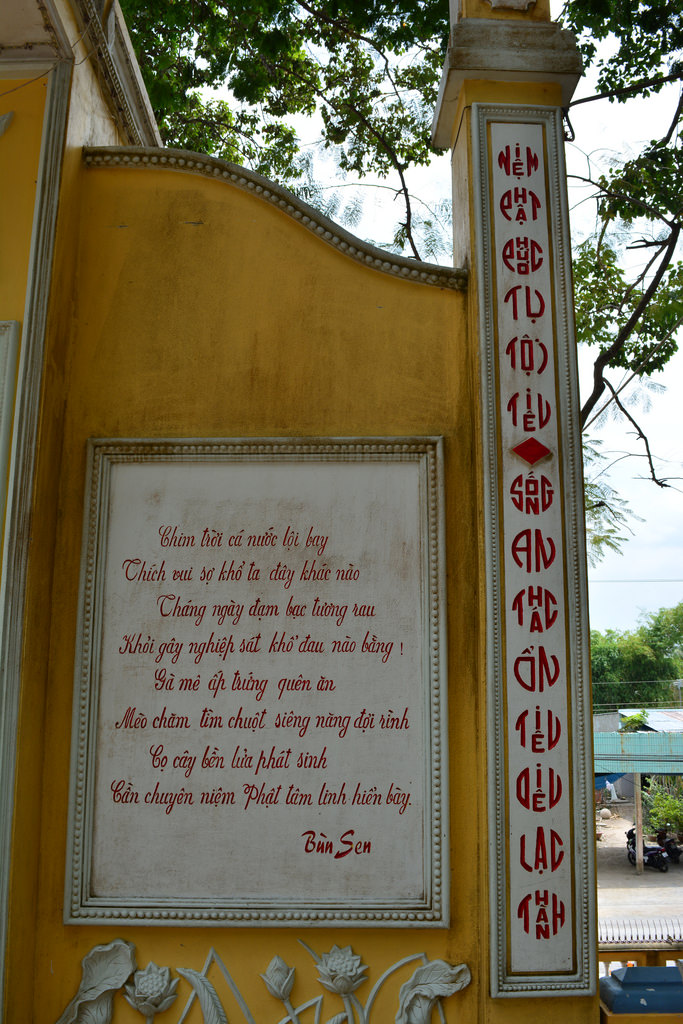 Chim trời cá nước lội bay
Thích vui sợ khổ ta đây khác nào
Tháng ngày đạm bạc tương rau
Khỏi gây nghiệp sát khổ đau nào bằng !
Gà mê ấp trứng quên ăn
Mèo chăm tìm chuột siêng năng đợi rình
Cọ cây bền lửa phát sinh
Cần chuyên niệm Phật tâm linh hiển bày.
Bùn Sen
NIỆM
PHẬT
PHƯỚC
TỤ
TỘI
TIÊU
SỐNG
AN
THÁC
ỔN
TIÊU
DIÊU
LẠC
THÀNH